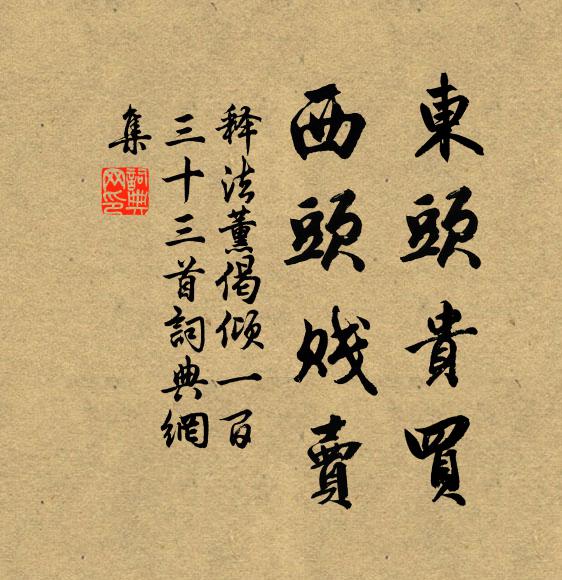 東頭貴買
西頭賤賣
释法薰偈倾一百
三十三首詞典網
集
詞典
网印